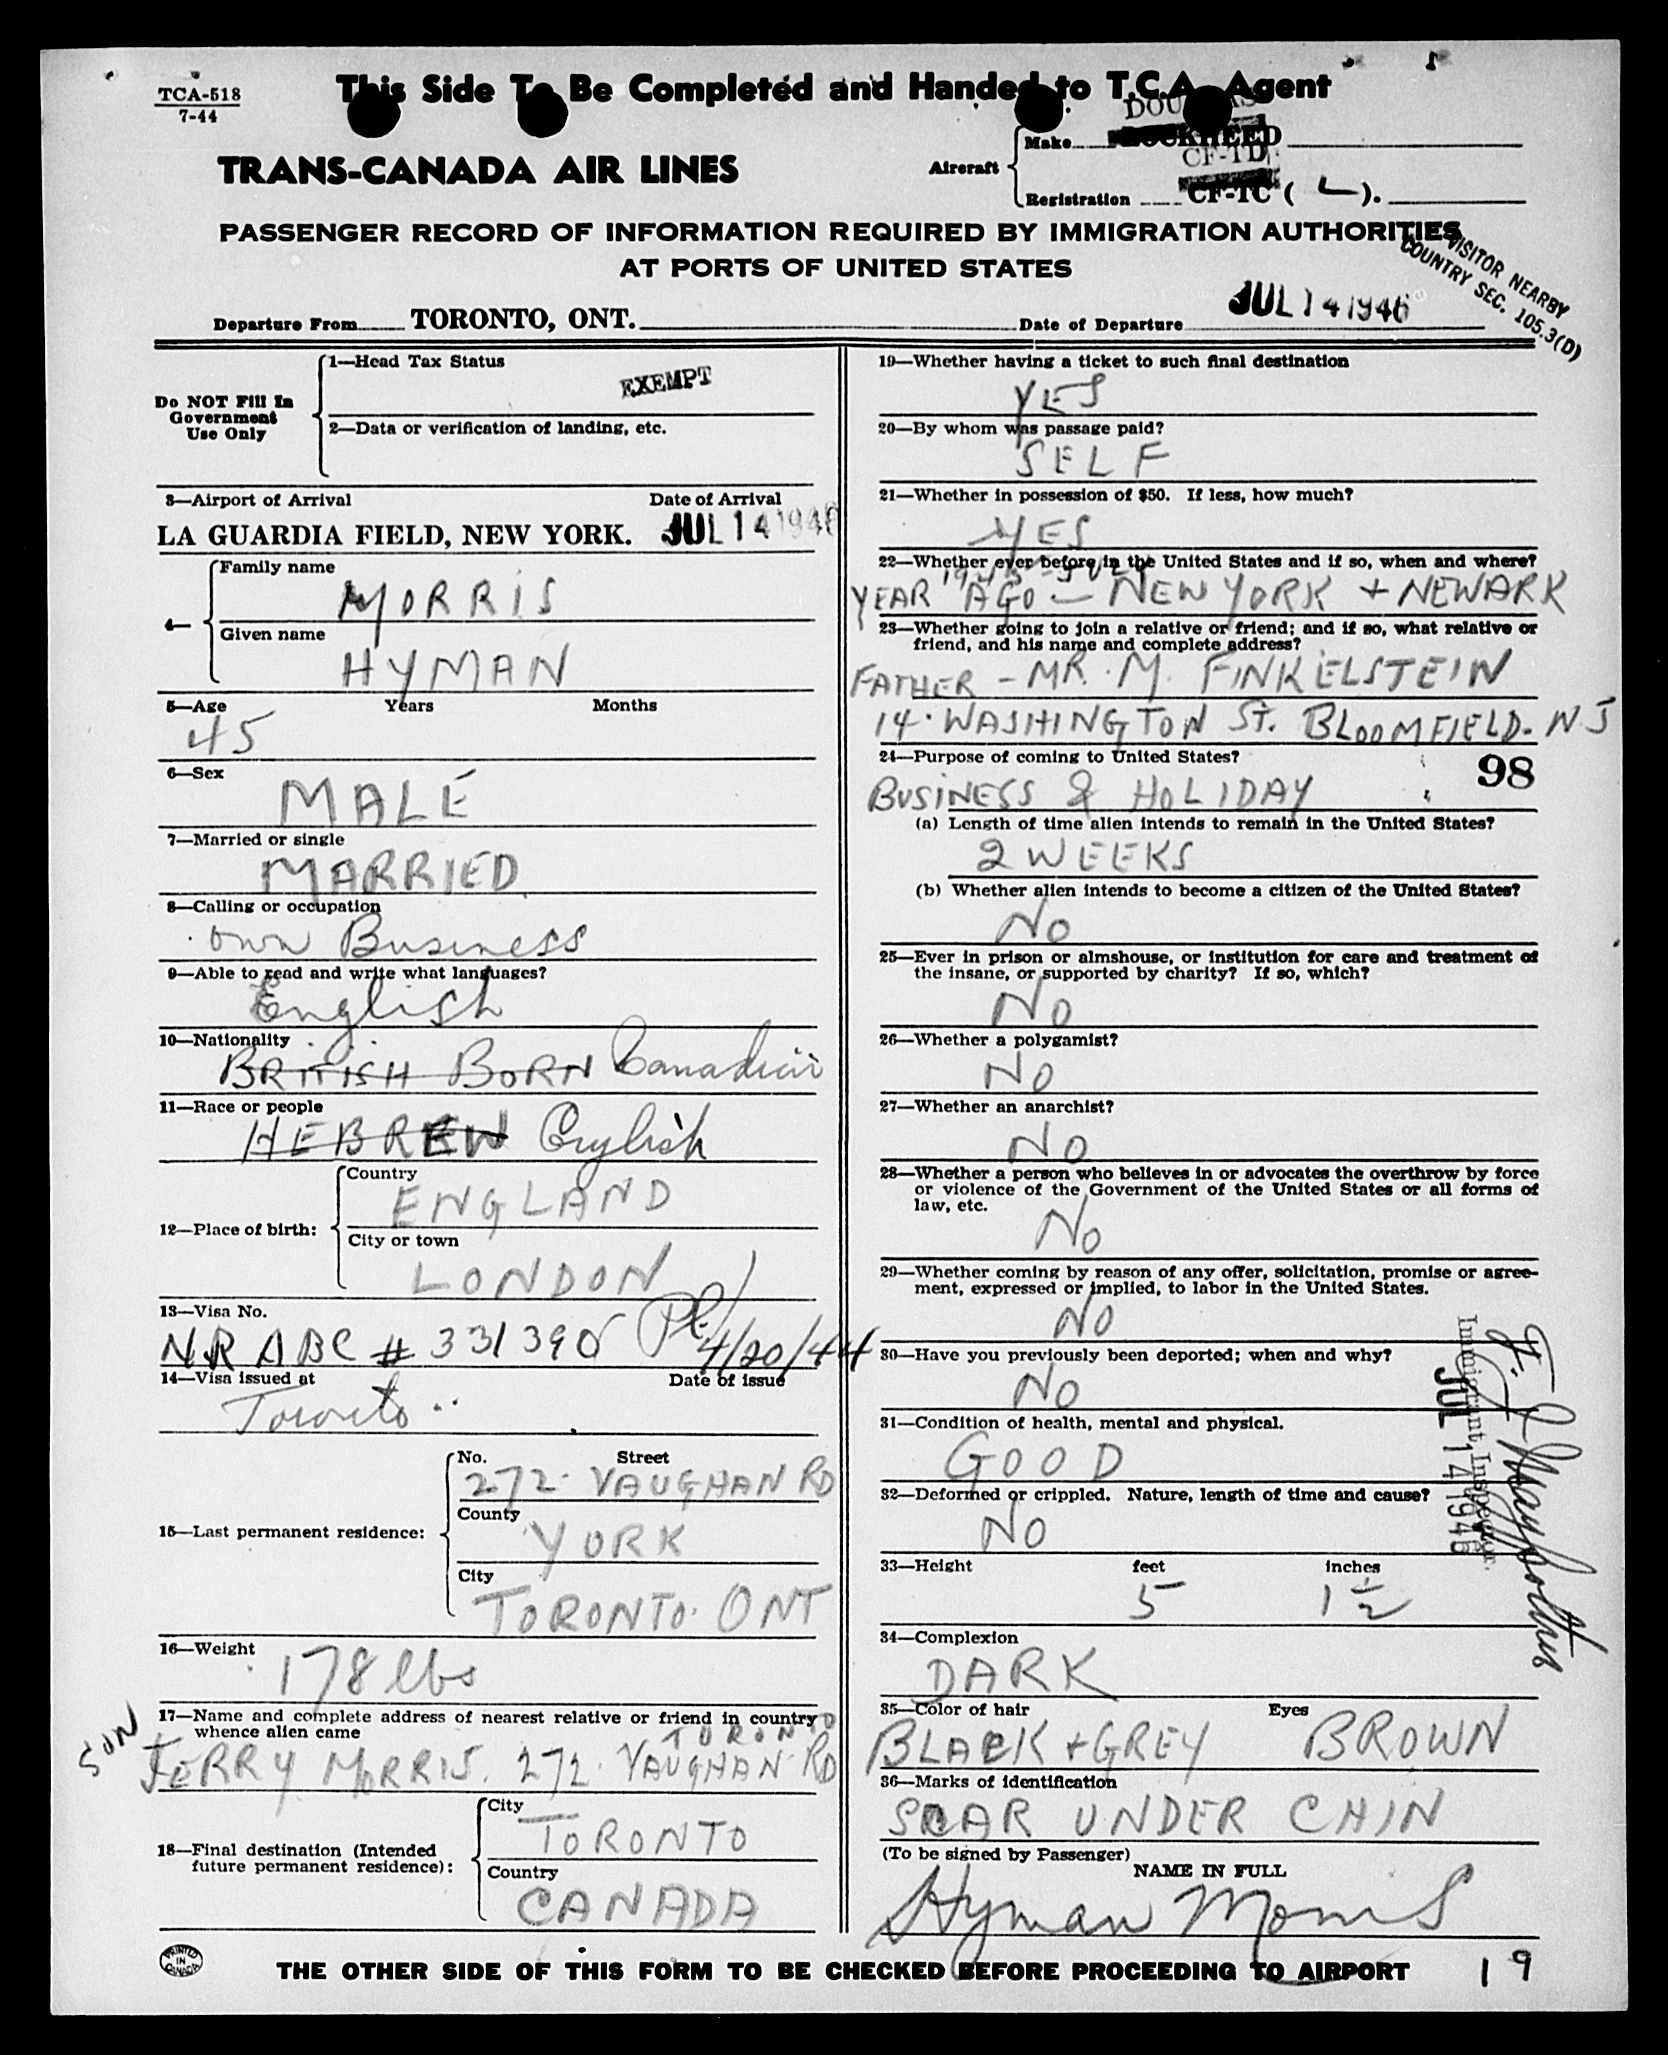 TCA-518
7-44
This Side To Be Completed and Handed to T.C.A. Agent
TRANS-CANADA AIR LINES
Aircraft
Make
DOUGLAS
LOCKHEED
CF-TD
Registration
CF-TC ( L ).
PASSENGER RECORD OF INFORMATION REQUIRED BY IMMIGRATION AUTHORITIES
AT PORTS OF UNITED STATES
VISITOR NEARBY
COUNTRY SEC. 105.3(D)
Departure From TORONTO, ONT.
Date of Departure JUL 14 1946
Do NOT Fill In
Government
Use Only
1—Head Tax Status
EXEMPT
2—Data or verification of landing, etc.
3—Airport of Arrival Date of Arrival
LA GUARDIA FIELD, NEW YORK. JUL 14 1946
4—
Family name
MORRIS
Given name
HYMAN
5—Age Years Months
45
6—Sex
MALE
7—Married or single
MARRIED
8—Calling or occupation
own Business
9—Able to read and write what languages?
English
10—Nationality
BRITISH BORN Canadian
11—Race or people
HEBREW English
12—Place of birth:
Country
ENGLAND
City or town
LONDON
13—Visa No.
NR ABC # 331390 4/20/44
14—Visa issued at Date of issue
Toronto
15—Last permanent residence:
No. Street
272 VAUGHAN RD
County
YORK
City
TORONTO. ONT
16—Weight
178 lbs
17—Name and complete address of nearest relative or friend in country
whence alien came
TORONTO
SON
JERRY MORRIS. 272 VAUGHAN RD
18—Final destination (Intended
future permanent residence):
City
TORONTO
Country
CANADA
19—Whether having a ticket to such final destination
YES
20—By whom was passage paid?
SELF
21—Whether in possession of $50. If less, how much?
YES
22—Whether ever before in the United States and if so, when and where?
1945 - JULY
YEAR AGO — NEW YORK + NEWARK
23—Whether going to join a relative or friend; and if so, what relative or
friend, and his name and complete address?
FATHER - MR. M. FINKELSTEIN
14. WASHINGTON ST. BLOOMFIELD. N J
24—Purpose of coming to United States?
98
BUSINESS & HOLIDAY
(a) Length of time alien intends to remain in the United States?
2 WEEKS
(b) Whether alien intends to become a citizen of the United States?
NO
25—Ever in prison or almshouse, or institution for care and treatment of
the insane, or supported by charity? If so, which?
NO
26—Whether a polygamist?
NO
27—Whether an anarchist?
NO
28—Whether a person who believes in or advocates the overthrow by force
or violence of the Government of the United States or all forms of
law, etc.
NO
29—Whether coming by reason of any offer, solicitation, promise or agree-
ment, expressed or implied, to labor in the United States.
NO
30—Have you previously been deported; when and why?
NO
31—Condition of health, mental and physical.
GOOD
32—Deformed or crippled. Nature, length of time and cause?
NO
Immigrant Inspector.
JUL 14 1946
33—Height feet inches
5 1 1/2
34—Complexion
DARK
35—Color of hair Eyes
BLACK + GREY BROWN
36—Marks of identification
SCAR UNDER CHIN
(To be signed by Passenger)
NAME IN FULL
Hyman Morris
PRINTED IN CANADA
THE OTHER SIDE OF THIS FORM TO BE CHECKED BEFORE PROCEEDING TO AIRPORT
19